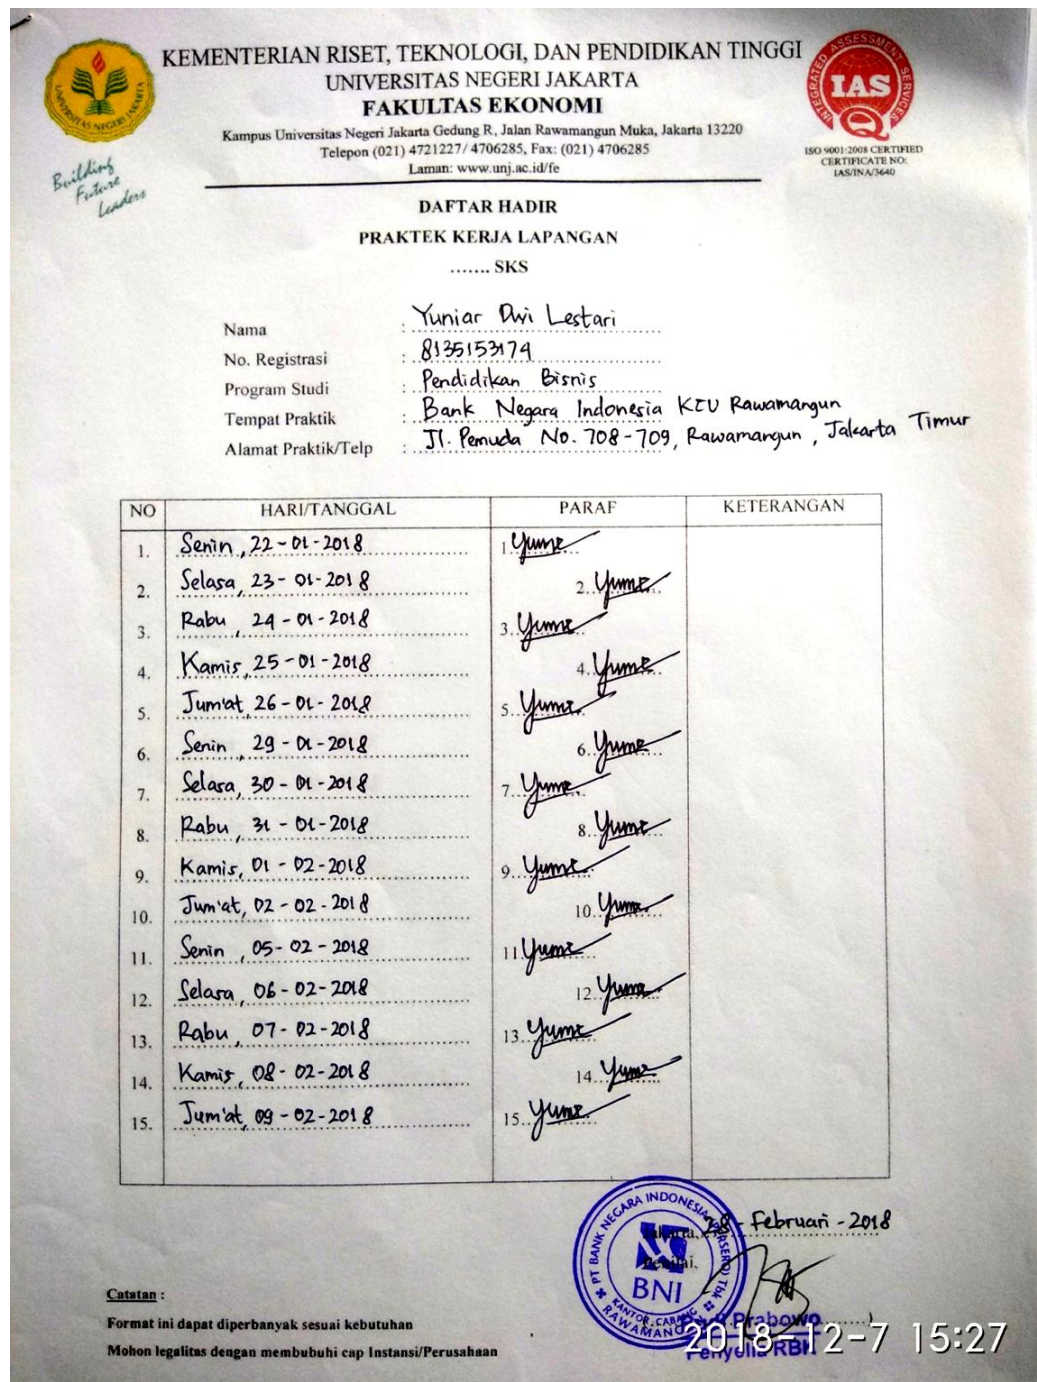 KEMENTERIAN RISET, TEKNOLOGI, DAN PENDIDIKAN TINGGI
UNIVERSITAS NEGERI JAKARTA
FAKULTAS EKONOMI
Kampus Universitas Negeri Jakarta Gedung R, Jalan Rawamangun Muka, Jakarta 13220
Telepon (021) 4721227/ 4706285, Fax: (021) 4706285
Laman: www.unj.ac.id/fe
UNIVERSITAS NEGERI JAKARTA
Building
Future
Leaders
INTEGRATED ASSESSMENT SERVICES
IAS
ISO 9001:2008 CERTIFIED
CERTIFICATE NO:
IAS/INA/3640
DAFTAR HADIR
PRAKTEK KERJA LAPANGAN
....... SKS
Nama : Yuniar Dwi Lestari
No. Registrasi : 8135153174
Program Studi : Pendidikan Bisnis
Tempat Praktik : Bank Negara Indonesia KCU Rawamangun
Alamat Praktik/Telp : Jl. Pemuda No. 708-709, Rawamangun, Jakarta Timur
NO HARI/TANGGAL PARAF KETERANGAN
1. Senin, 22-01-2018 1.
2. Selasa, 23-01-2018 2.
3. Rabu, 24-01-2018 3.
4. Kamis, 25-01-2018 4.
5. Jum'at, 26-01-2018 5.
6. Senin, 29-01-2018 6.
7. Selasa, 30-01-2018 7.
8. Rabu, 31-01-2018 8.
9. Kamis, 01-02-2018 9.
10. Jum'at, 02-02-2018 10.
11. Senin, 05-02-2018 11.
12. Selasa, 06-02-2018 12.
13. Rabu, 07-02-2018 13.
14. Kamis, 08-02-2018 14.
15. Jum'at, 09-02-2018 15.
Jakarta, 28-Februari-2018
Penilai,
PT BANK NEGARA INDONESIA (PERSERO) Tbk
BNI
KANTOR CABANG
RAWAMANGUN
Prabowo
Penyelia RBK
Catatan :
Format ini dapat diperbanyak sesuai kebutuhan
Mohon legalitas dengan membubuhi cap Instansi/Perusahaan
2018-12-7 15:27